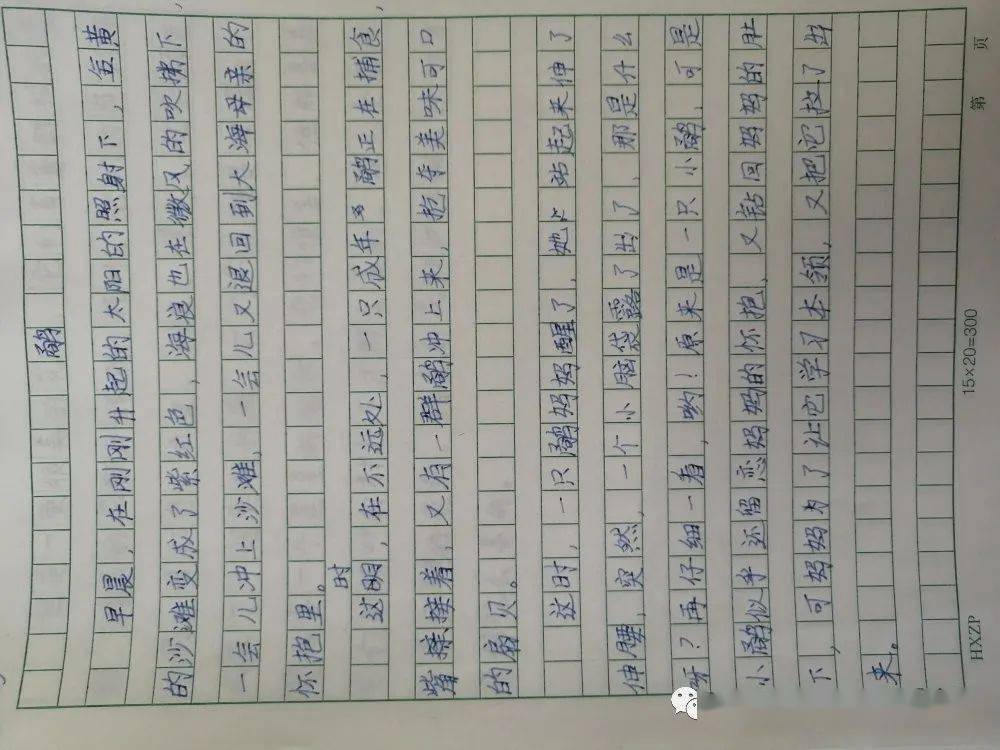 鹬
早晨，在刚刚升起的太阳的照射下，金黄
的沙滩变成了紫红色，海浪也在微风的吹拂下，
一会儿冲上沙滩，一会儿又退回到大海母亲的
怀抱里。
时
这，在不远处，一只成年鹬正在捕食，
接着，又有一群鹬冲上来，抢夺美味可口
的扇贝。
这时，一只鹬妈妈醒了，她站起来伸了
伸腰，突然，一个小脑袋露了出了，那是什么
呀？再仔细一看，哟！原来是一只小鹬，可是
小鹬似乎还留恋妈妈的怀抱，又钻回妈妈的肚
下，可妈妈为了让它学习本领，又把它拉了出
来。
HXZP 15×20=300 第 页